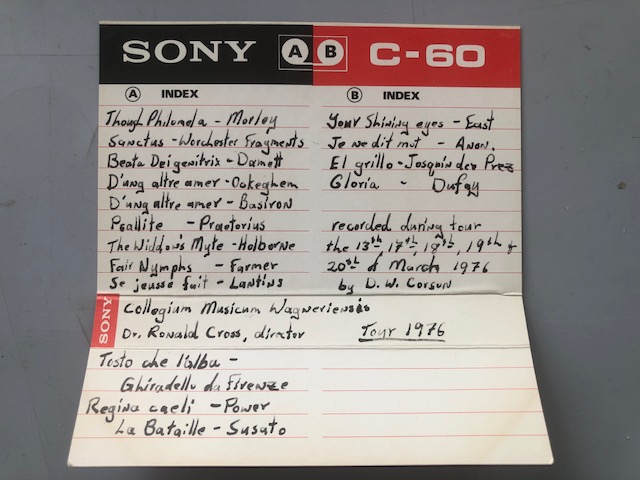 SONY A B C-60
A INDEX
Though Philomela - Morley
Sanctus - Worchester Fragments
Beata Dei genitrix - Damett
D'ung altre amer - Ockeghem
D'ung altre amer - Basiron
Psallite - Praetorius
The Widdow's Myte - Holborne
Fair Nymphs - Farmer
Se jeusse fait - Lantins
B INDEX
Your Shining eyes - East
Je ne dit mot - Anon.
El grillo - Josquin des Prez
Gloria - Dufay
recorded during tour
the 13th, 17th, 18th, 19th &
20th of March 1976
by D. W. Corson
SONY
Collegium Musicum Wagneriensis
Dr. Ronald Cross, director
Tour 1976
Tosto che l'alba -
Ghiradello da Firenze
Regina caeli - Power
La Bataille - Susato